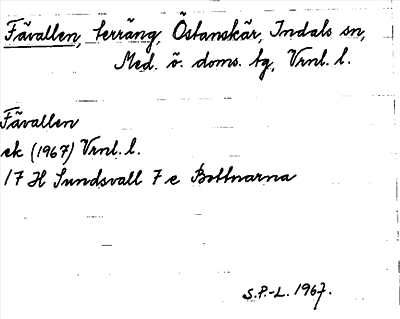 Fävallen, terräng, Östanskär, Indals sn,
Med. ö. doms. tg, Vrnl. l.
Fävallen
ek (1967) Vrnl. l.
17 H Sundsvall 7 e Bottnarna
S.P.-L. 1967.